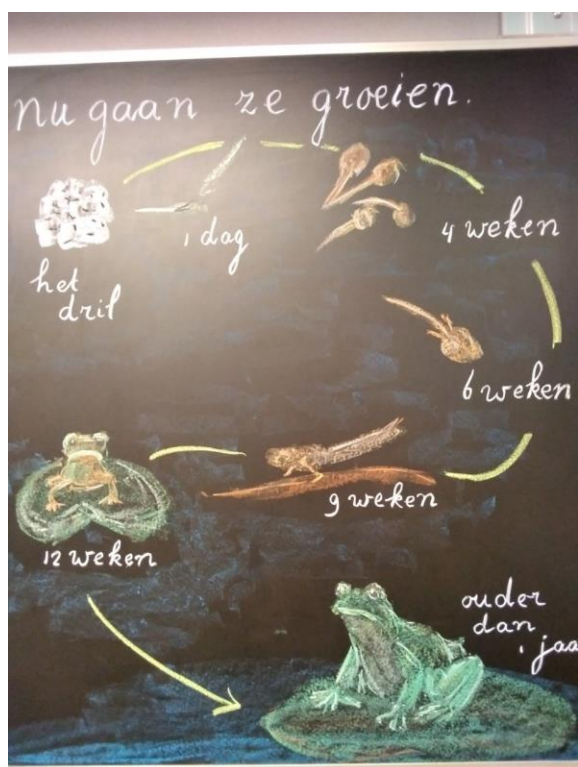 nu gaan ze groeien.
het
dril
1 dag
4 weken
6 weken
9 weken
12 weken
ouder
dan
1 jaa